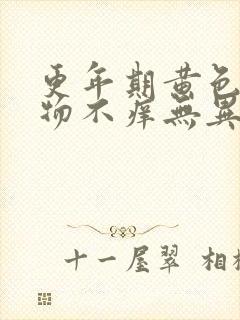 更年期黄色
物不痒無異
十一屋翠 相